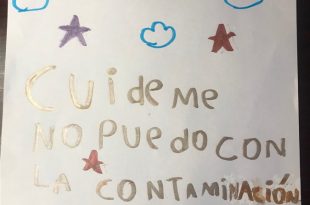 CUideme
NO PUedO CON
LA CONTAMINACIÓN